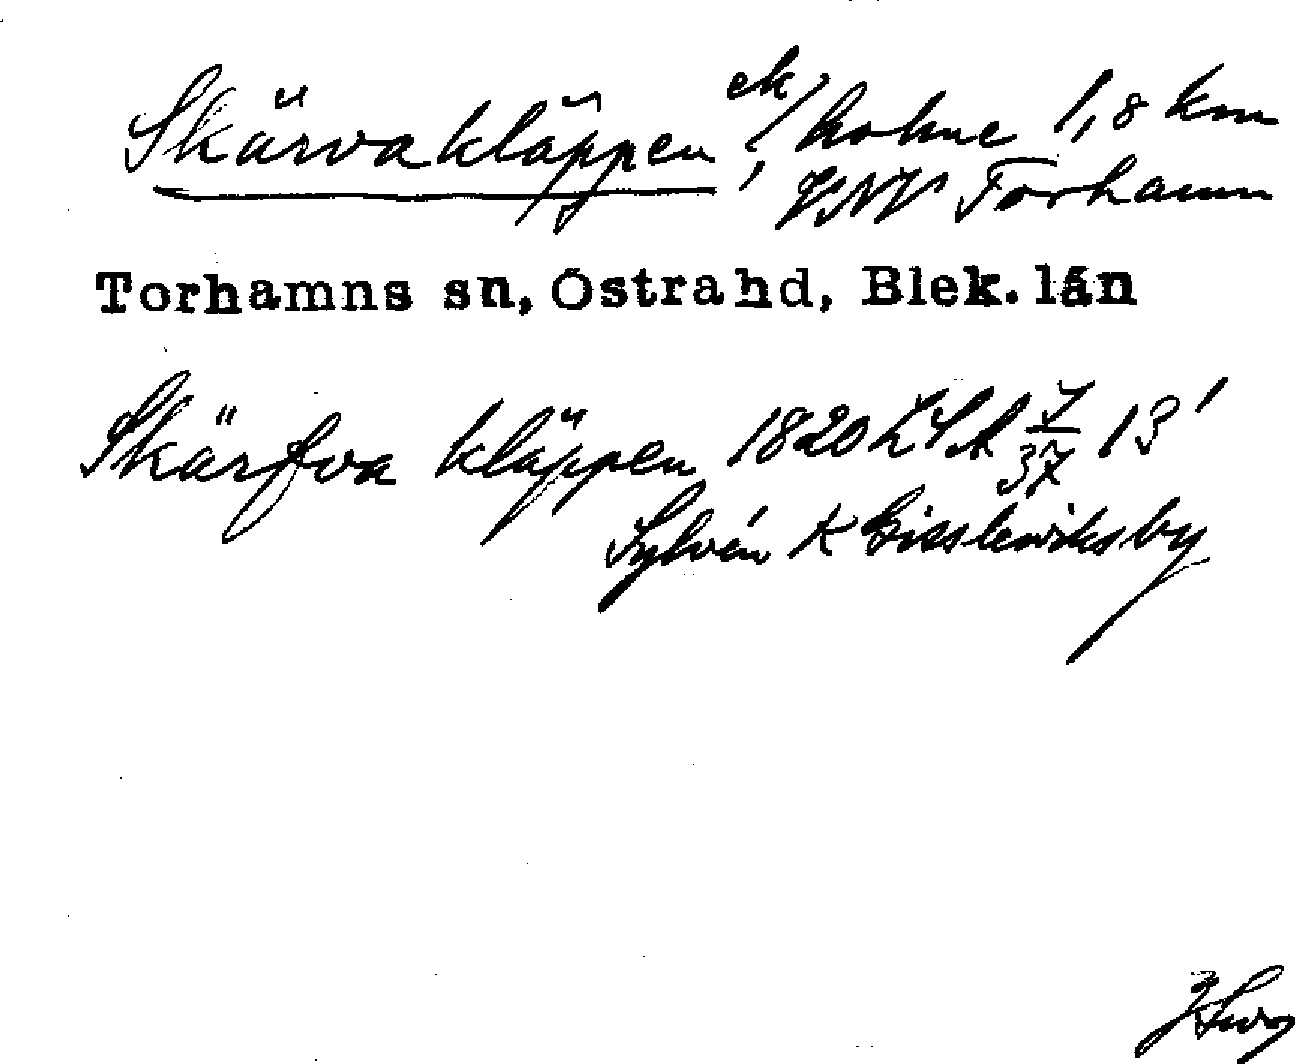 Skärvakläppen, ek/holme 1,8 km
VNV Torhamn
Torhamns sn, Östra hd, Blek. län
Skärfva kläppen 1820 LSA 7/37 13'
Sylvén K Gisslewiksby